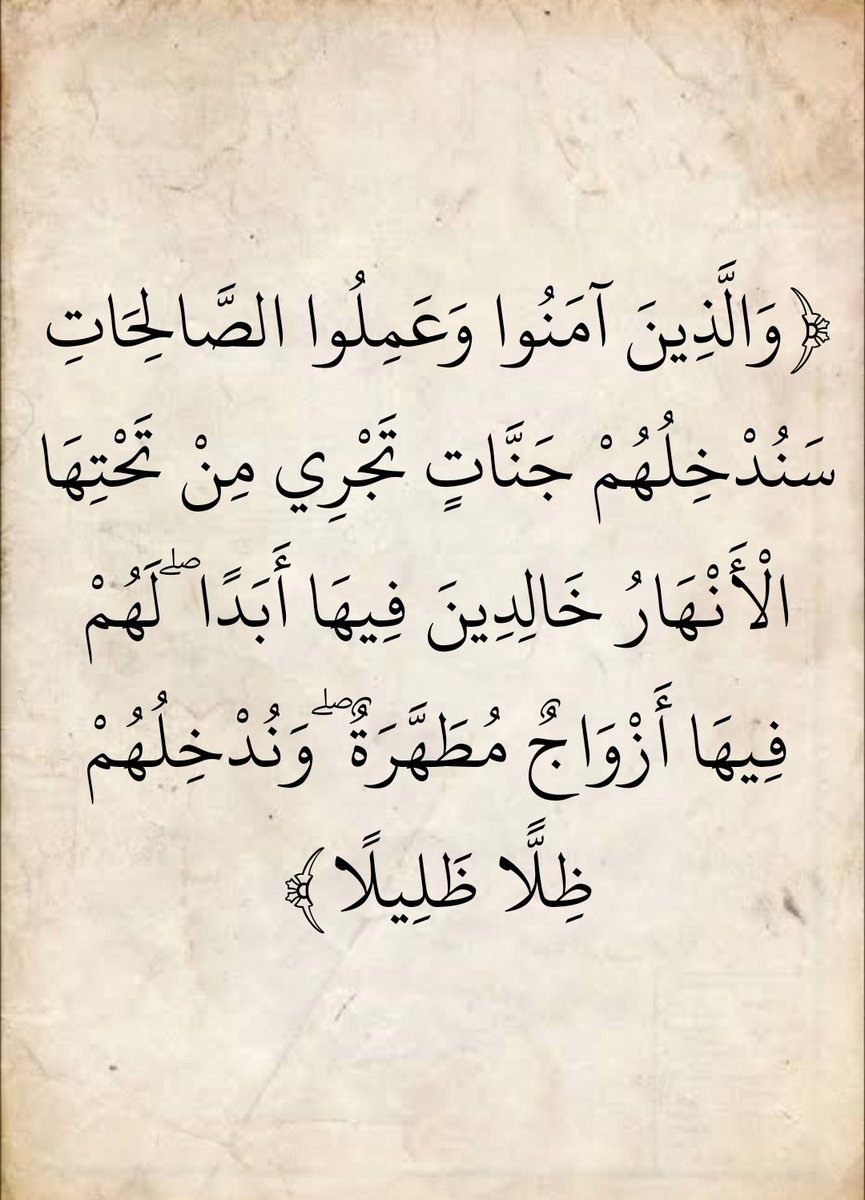 ﴿وَالَّذِينَ آمَنُوا وَعَمِلُوا الصَّالِحَاتِ
سَنُدْخِلُهُمْ جَنَّاتٍ تَجْرِي مِنْ تَحْتِهَا
الْأَنْهَارُ خَالِدِينَ فِيهَا أَبَدًا ۖ لَهُمْ
فِيهَا أَزْوَاجٌ مُطَهَّرَةٌ ۖ وَنُدْخِلُهُمْ
ظِلًّا ظَلِيلًا﴾